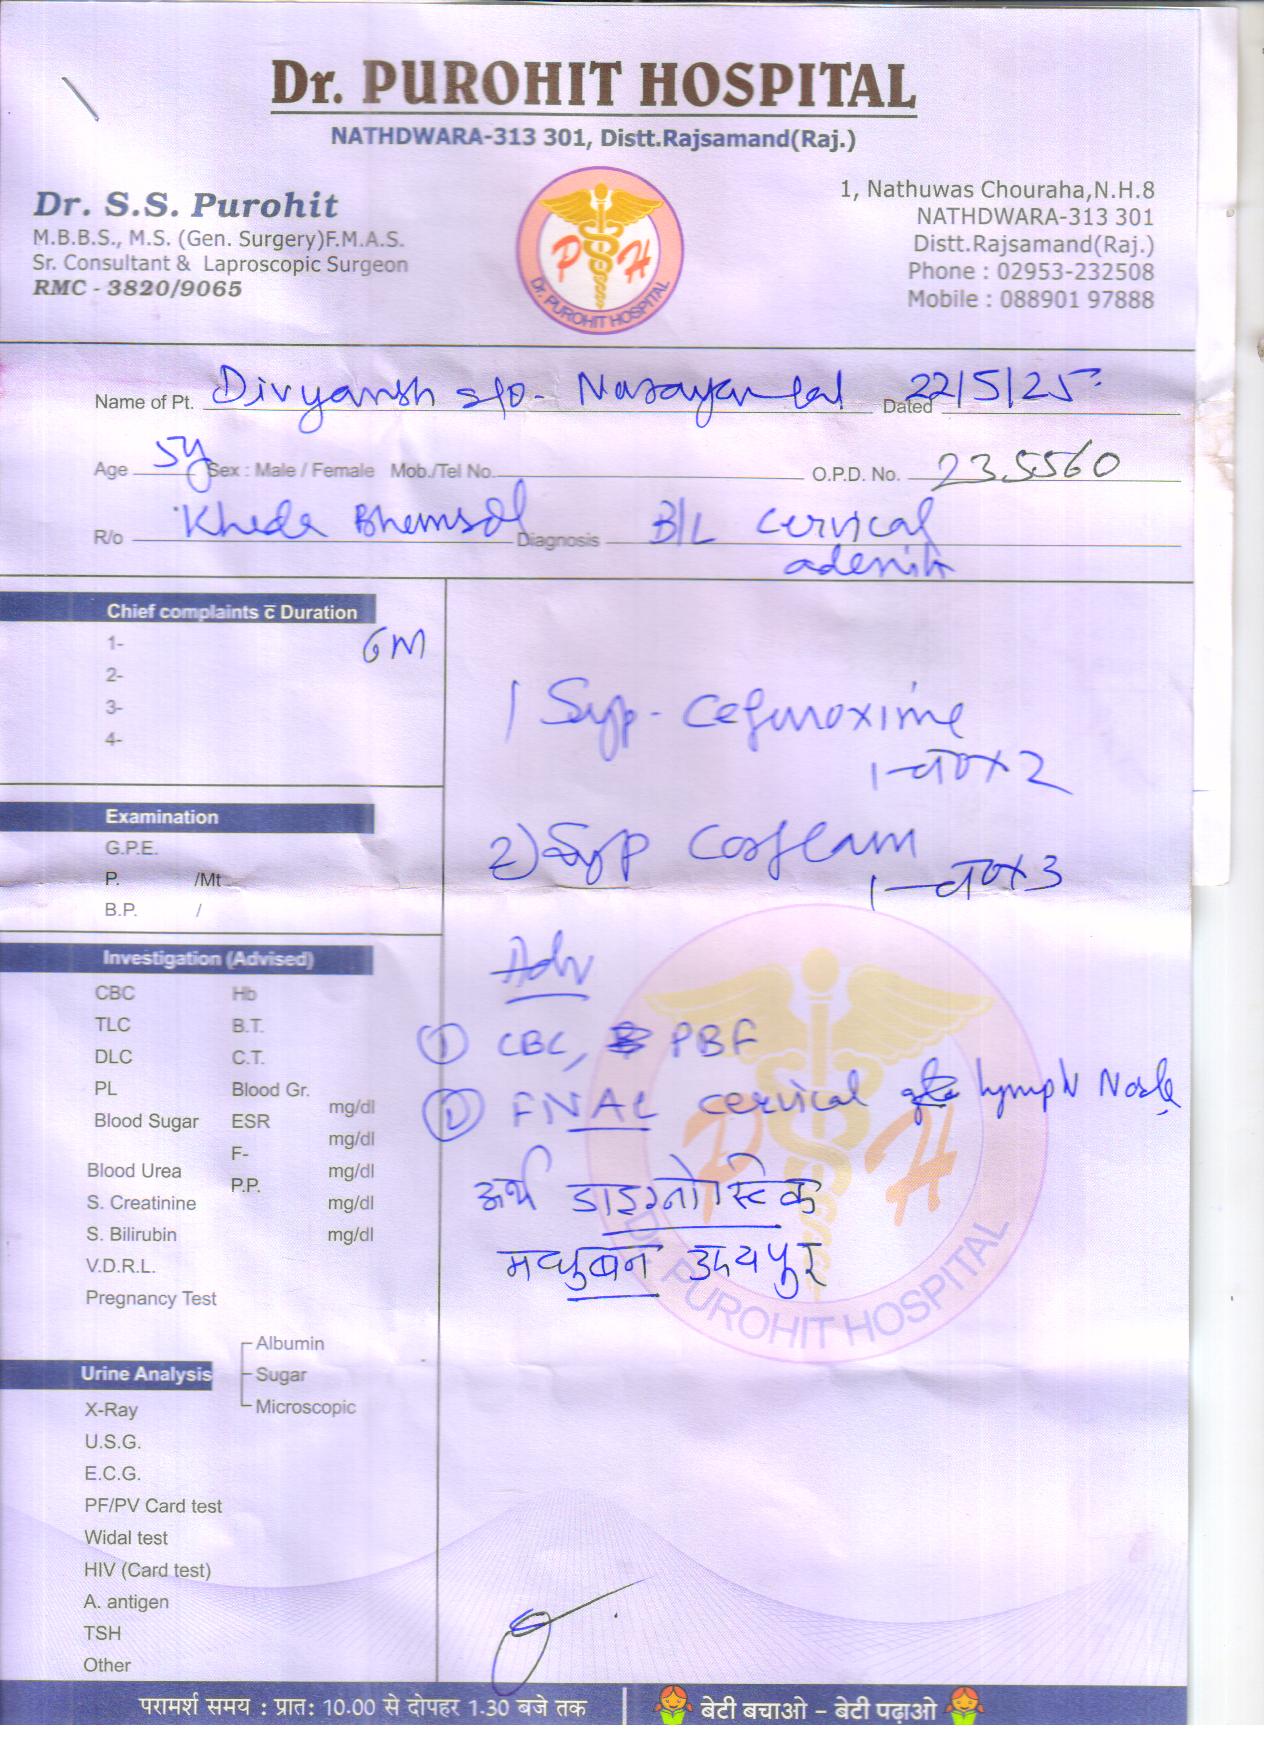 Dr. PUROHIT HOSPITAL
NATHDWARA-313 301, Distt.Rajsamand(Raj.)
Dr. S.S. Purohit
M.B.B.S., M.S. (Gen. Surgery)F.M.A.S.
Sr. Consultant & Laproscopic Surgeon
RMC - 3820/9065
P H
Dr. PUROHIT HOSPITAL
1, Nathuwas Chouraha,N.H.8
NATHDWARA-313 301
Distt.Rajsamand(Raj.)
Phone : 02953-232508
Mobile : 088901 97888
Name of Pt. Divyansh s/o- Narayan lal Dated 22/5/25
Age 5y Sex : Male / Female Mob./Tel No. O.P.D. No. 235560
R/o Kheda Diagnosis B/L cervical
adenitis
Chief complaints c̅ Duration
1- 6M
2-
3-
4-
Examination
G.P.E.
P. /Mt
B.P. /
Investigation (Advised)
CBC Hb
TLC B.T.
DLC C.T.
PL Blood Gr.
mg/dl
Blood Sugar ESR
mg/dl
F-
Blood Urea mg/dl
P.P.
S. Creatinine mg/dl
S. Bilirubin mg/dl
V.D.R.L.
Pregnancy Test
Albumin
Urine Analysis Sugar
Microscopic
X-Ray
U.S.G.
E.C.G.
PF/PV Card test
Widal test
HIV (Card test)
A. antigen
TSH
Other
1 Syp- Cefuroxime
1- x 2
2) Syp
1- x 3
Adv
1 CBC, PBF
2 FNAC cervical lymph Node
अर्थ डाइग्नोस्टिक
मधुबन उदयपुर
P H
Dr. PUROHIT HOSPITAL
परामर्श समय : प्रात: 10.00 से दोपहर 1.30 बजे तक
बेटी बचाओ – बेटी पढ़ाओ